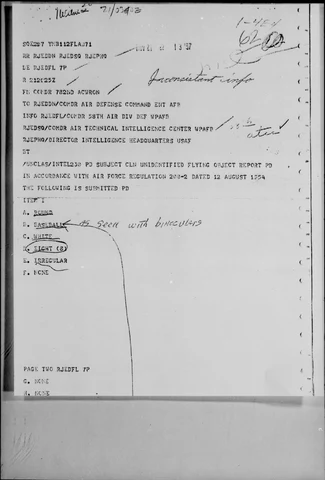 1-4ES4
62
SGE287 YNB112FLA071
RR RJEDEN RJEDSQ RJEPHQ
DE RJEDFL 7P
R 212123Z
Inconsistant info
FM COMDR 782ND ACWRON
TO RJEDEN/COMDR AIR DEFENSE COMMAND ENT AFB
INFO RJEDFL/COMDR 58TH AIR DIV DEF WPAFB
RJEDSQ/COMDR AIR TECHNICAL INTELLIGENCE CENTER WPAFD
RJEPHQ/DIRECTOR INTELLIGENCE HEADQUARTERS USAF
BT
/UNCLAS/INTEL230 PD SUBJECT CLN UNIDENTIFIED FLYING OBJECT REPORT PD
IN ACCORDANCE WITH AIR FORCE REGULATION 200-2 DATED 12 AUGUST 1954
THE FOLLOWING IS SUBMITTED PD
ITEM I
A. ROUND
B. BASEBALL as seen with binoculars
C. WHITE
D. EIGHT (8)
E. IRREGULAR
F. NONE
PAGE TWO RJEDFL 7P
G. NONE
H. NONE